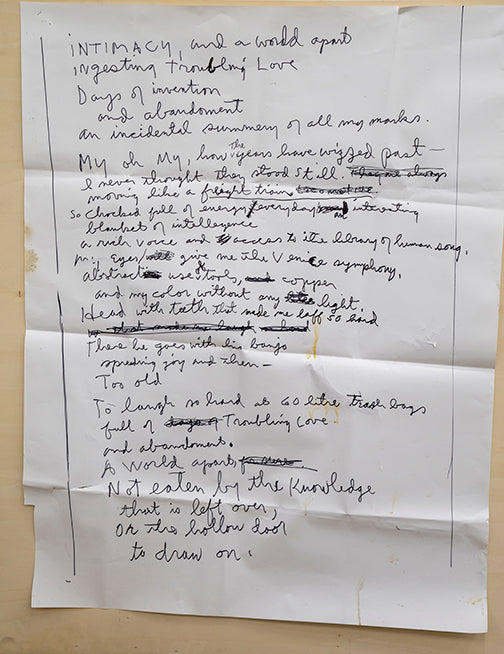 INTIMACY, and a world apart
ingesting Troubling Love
Days of invention
and abandoment
an incidental summery of all my marks.
My oh My, how the years have wizzed past —
I never thought they stood still.
moving like a freight train
So chocked full of energy, everyday an interesting
blanket of intellegence
a rich voice and access to the library of human song.
my Eyes, give me the Venice symphony,
abstract use of tools, copper
and my color without any light.
Head with teeth that made me laff so hard
There he goes with his banjo
spreding joy and then —
Too old
To laugh so hard as 60 litre trash bags
full of Troubling Love
and abandoment.
A World apart,
Not eaten by the Knowledge
that is left over,
or the hollow door
to draw on.